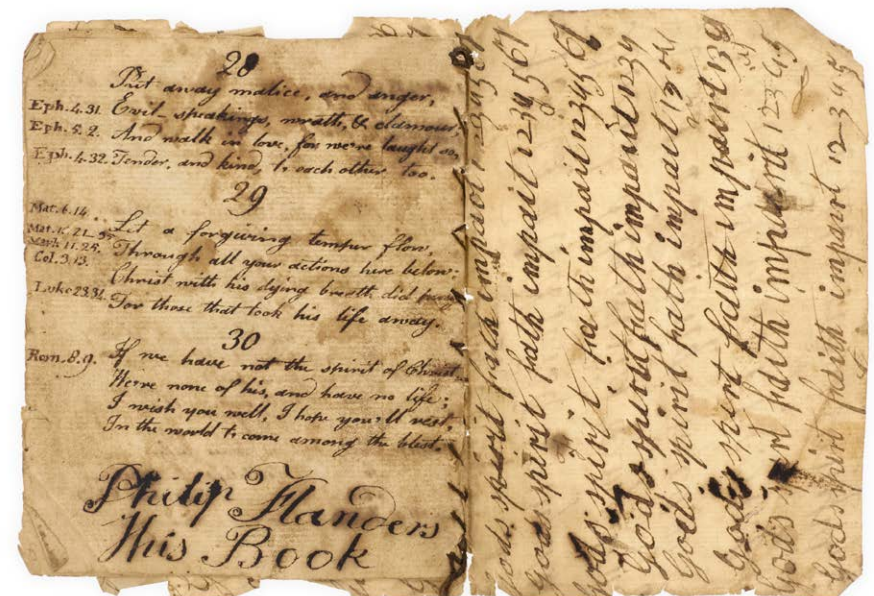 28
Put away malice, and anger,
Eph. 4.31. Evil-speakings, wrath, & clamour,
Eph. 5. 2. And walk in love, for we're taught so,
Eph. 4.32. Tender, and kind, to each other too.
29
Mat. 6.14. Let a forgiving temper flow,
Mark 11.25. Through all your actions here below:
Col. 3.13. Christ with his dying breath did pray
Luke 23.34. For those that took his life away.
30
Rom. 8.9. If we have not the spirit of Christ
We're none of his, and have no life;
I wish you well, I hope you'll rest,
In the world to come among the blest.
Philip Flanders
His Book
gods spirit faith impait 1234567
gods spirit faith impait 1234567
gods spirit faith impait 1234567
gods spirit faith impait 1234
gods spirit faith impait 12
gods spirit faith impairt 1239
gods faith impairt 12345
gods spirit faith impairt 12345